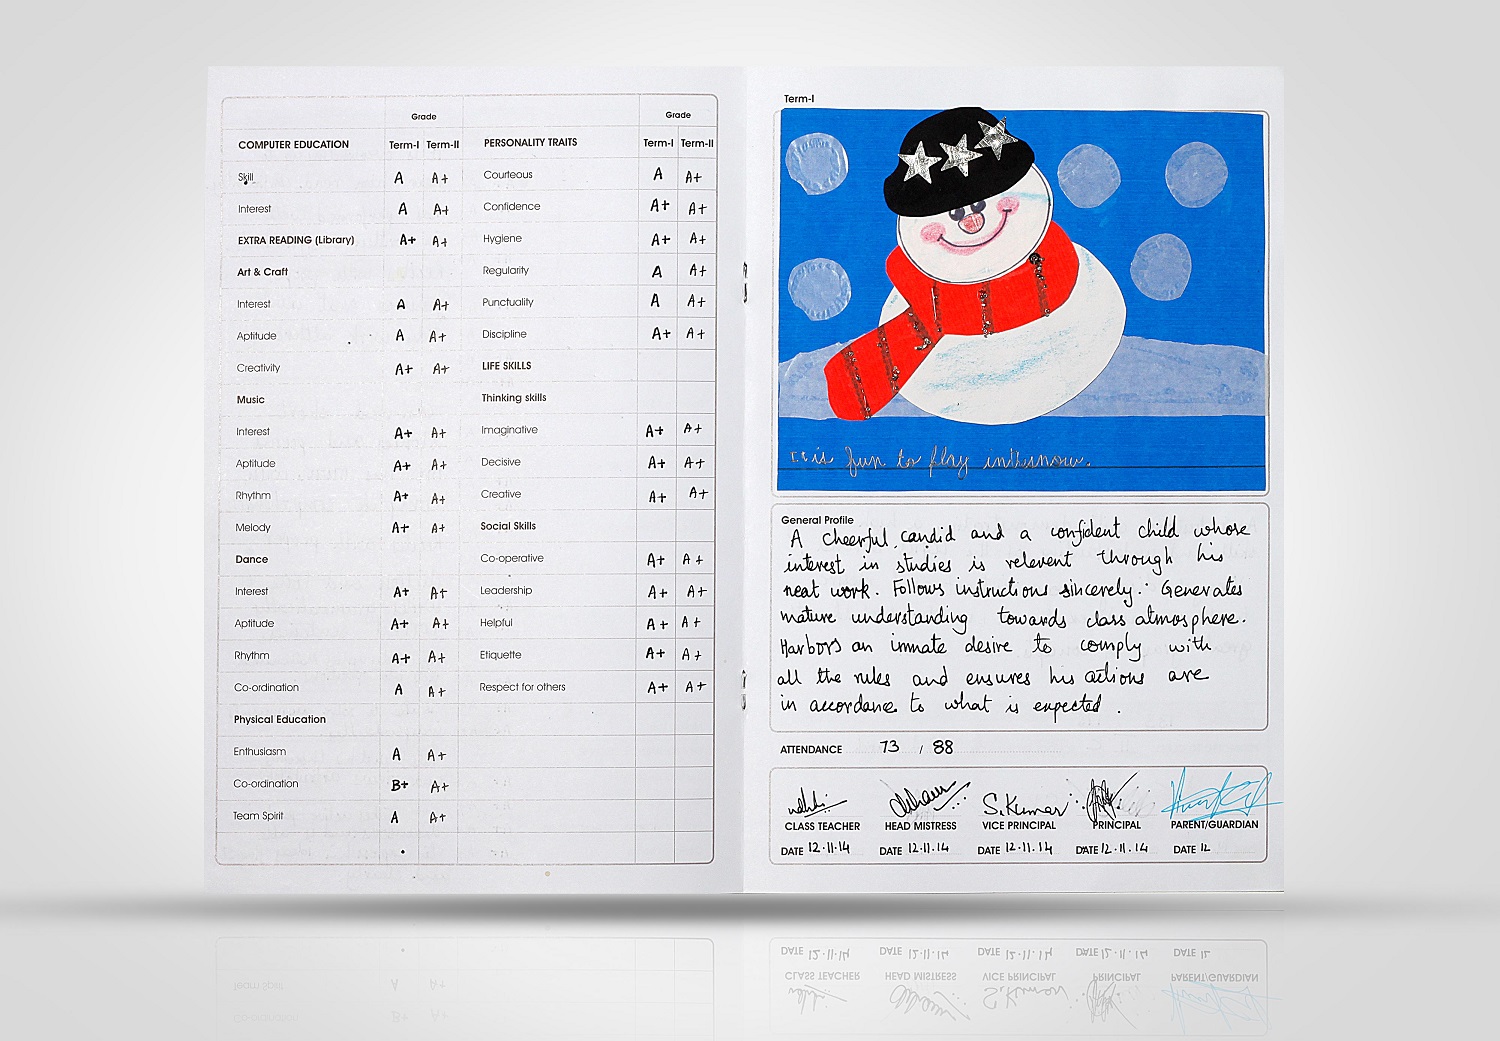 Grade Grade
COMPUTER EDUCATION Term-I Term-II PERSONALITY TRAITS Term-I Term-II
Skill A A+ Courteous A A+
Interest A A+ Confidence A+ A+
EXTRA READING (Library) A+ A+ Hygiene A+ A+
Art & Craft Regularity A A+
Interest A A+ Punctuality A A+
Aptitude A A+ Discipline A+ A+
Creativity A+ A+ LIFE SKILLS
Music Thinking skills
Interest A+ A+ Imaginative A+ A+
Aptitude A+ A+ Decisive A+ A+
Rhythm A+ A+ Creative A+ A+
Melody A+ A+ Social Skills
Dance Co-operative A+ A+
Interest A+ A+ Leadership A+ A+
Aptitude A+ A+ Helpful A+ A+
Rhythm A+ A+ Etiquette A+ A+
Co-ordination A A+ Respect for others A+ A+
Physical Education
Enthusiasm A A+
Co-ordination B+ A+
Team Spirit A A+
Term-I
It is fun to play in the snow.
General Profile
A cheerful, candid and a confident child whose
interest in studies is relevent through his
neat work. Follows instructions sincerely. Generates
mature understanding towards class atmosphere.
Harbors an innate desire to comply with
all the rules and ensures his actions are
in accordance to what is expected.
ATTENDANCE 73 / 88
S.Kumar
CLASS TEACHER HEAD MISTRESS VICE PRINCIPAL PRINCIPAL PARENT/GUARDIAN
DATE 12.11.14 DATE 12.11.14 DATE 12.11.14 DATE 12.11.14 DATE 12